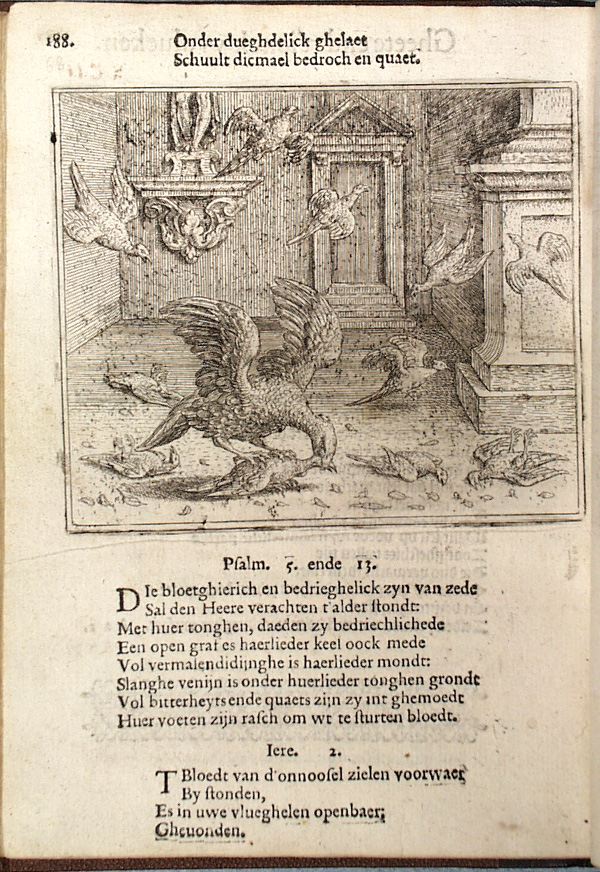 188.
Onder dueghdelick ghelaet
Schuult dicmael bedroch en quaet.
Psalm. 5. ende 13.
DIe bloetghierich en bedrieghelick zyn van zede
Sal den Heere verachten t'alder stondt:
Met huer tonghen, daeden zy bedriechlichede
Een open graf es haerlieder keel oock mede
Vol vermalendidijnghe is haerlieder mondt:
Slanghe venijn is onder huerlieder tonghen grondt
Vol bitterheyts ende quaets zijn zy int ghemoedt
Huer voeten zijn rasch om wt te sturten bloedt.
Iere. 2.
TBloedt van d'onnoosel zielen voorwaer
By stonden,
Es in uwe vlueghelen openbaer,
Gheuonden.